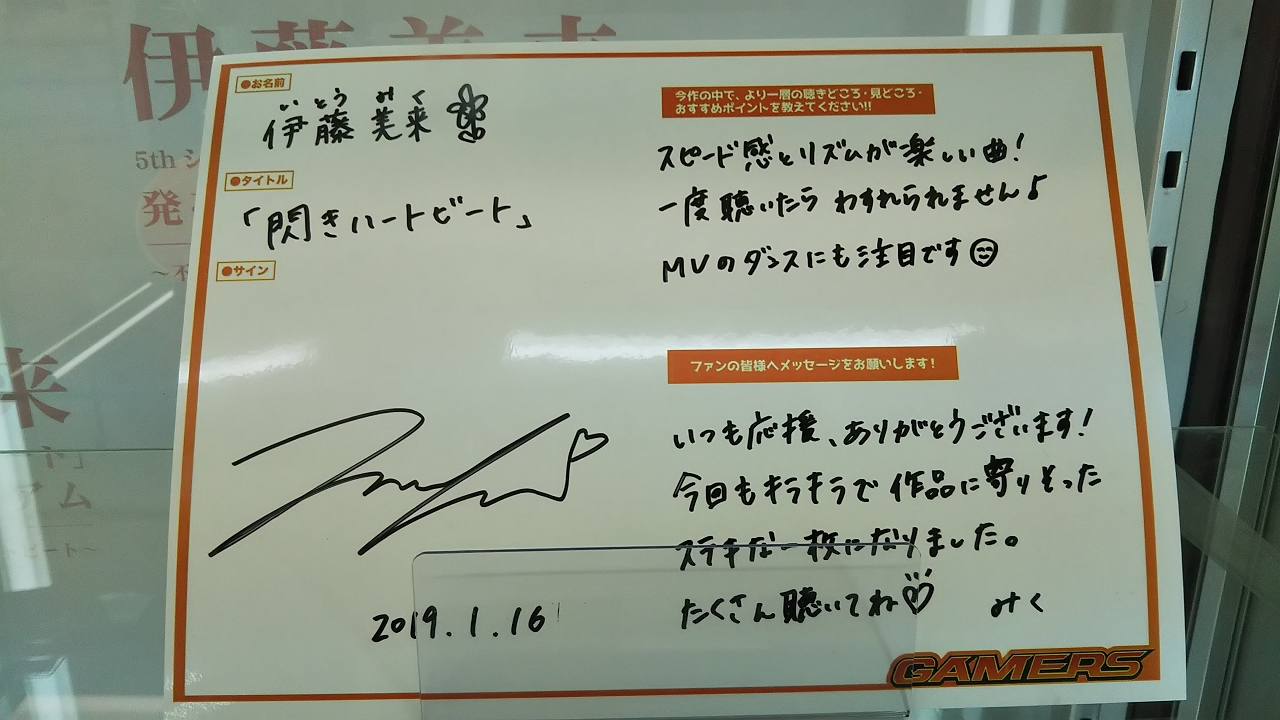 伊藤美来
5th シ
発
～不
来
ト」
アム
ート～
●お名前
いとう みく
伊藤 美来
●タイトル
「閃きハートビート」
●サイン
2019.1.16
今作の中で、より一層の聴きどころ・見どころ・
おすすめポイントを教えてください!!
スピード感とリズムが楽しい曲!
一度聴いたら わすれられません♪
MVのダンスにも注目です
ファンの皆様へメッセージをお願いします!
いつも応援、ありがとうございます!
今回もキラキラで作品に寄りそった
ステキな一枚になりました。
たくさん聴いてね♡ みく
GAMERS